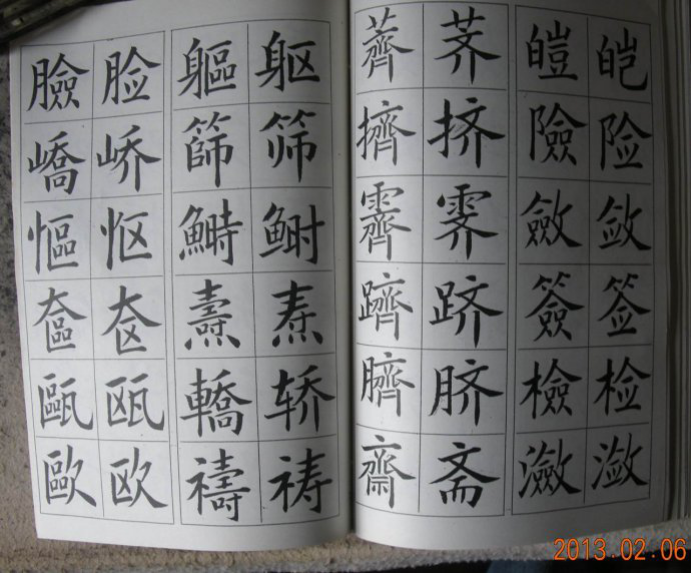 臉 脸 軀 躯
嶠 峤 篩 筛
慪 怄 鰣 鲥
奩 奁 燾 焘
甌 瓯 轎 轿
歐 欧 禱 祷
薺 荠 皚 皑
擠 挤 險 险
霽 霁 斂 敛
躋 跻 簽 签
臍 脐 檢 检
齋 斋 瀲 潋
2013.02.06